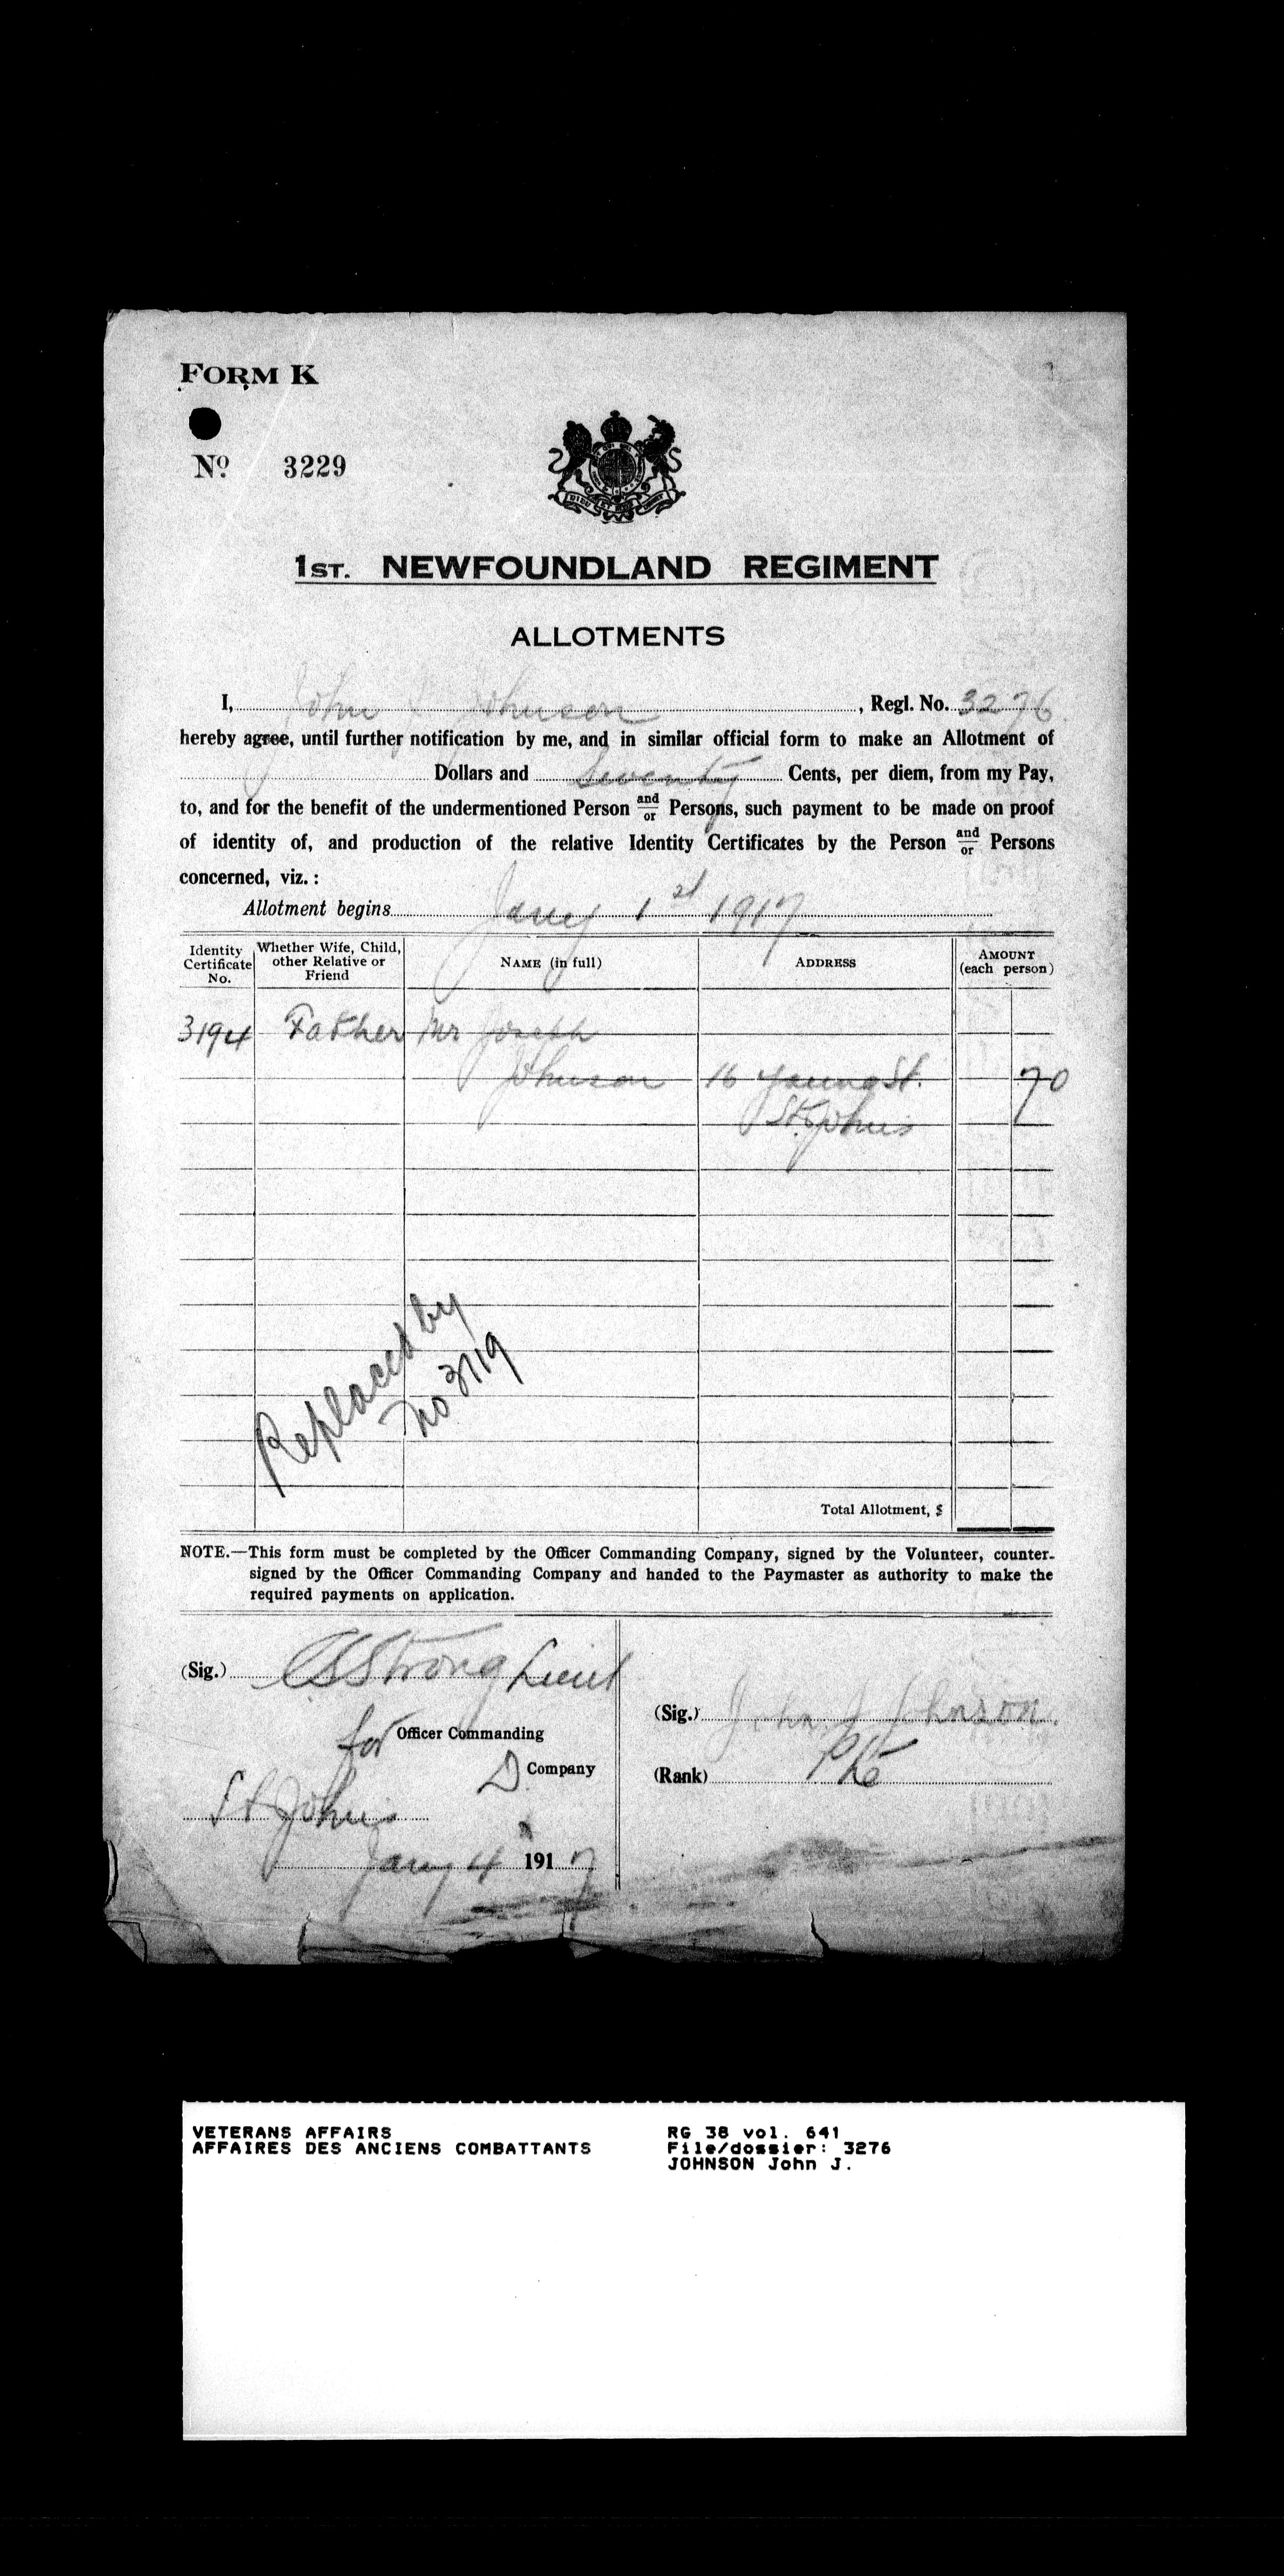 FORM K
Nº 3229
DIEU ET MON DROIT
1ST. NEWFOUNDLAND REGIMENT
ALLOTMENTS
I, John J Johnson, Regl. No. 3276
hereby agree, until further notification by me, and in similar official form to make an Allotment of
Dollars and Seventy Cents, per diem, from my Pay,
to, and for the benefit of the undermentioned Person and/or Persons, such payment to be made on proof
of identity of, and production of the relative Identity Certificates by the Person and/or Persons
concerned, viz. :
Allotment begins Jany 1st 1917
Identity Certificate No. Whether Wife, Child, other Relative or Friend NAME (in full) ADDRESS AMOUNT (each person)
3194 Father Mr Joseph
Johnson 16 Young St. 70
St. Johns
Replaced by
No 3719
Total Allotment, $
NOTE.—This form must be completed by the Officer Commanding Company, signed by the Volunteer, counter-
signed by the Officer Commanding Company and handed to the Paymaster as authority to make the
required payments on application.
(Sig.) CSStrong Lieut
for Officer Commanding
D Company
St Johns
Jany 4 1917
(Sig.) John J Johnson.
(Rank) Pte
VETERANS AFFAIRS
AFFAIRES DES ANCIENS COMBATTANTS
RG 38 vol. 641
File/dossier: 3276
JOHNSON John J.